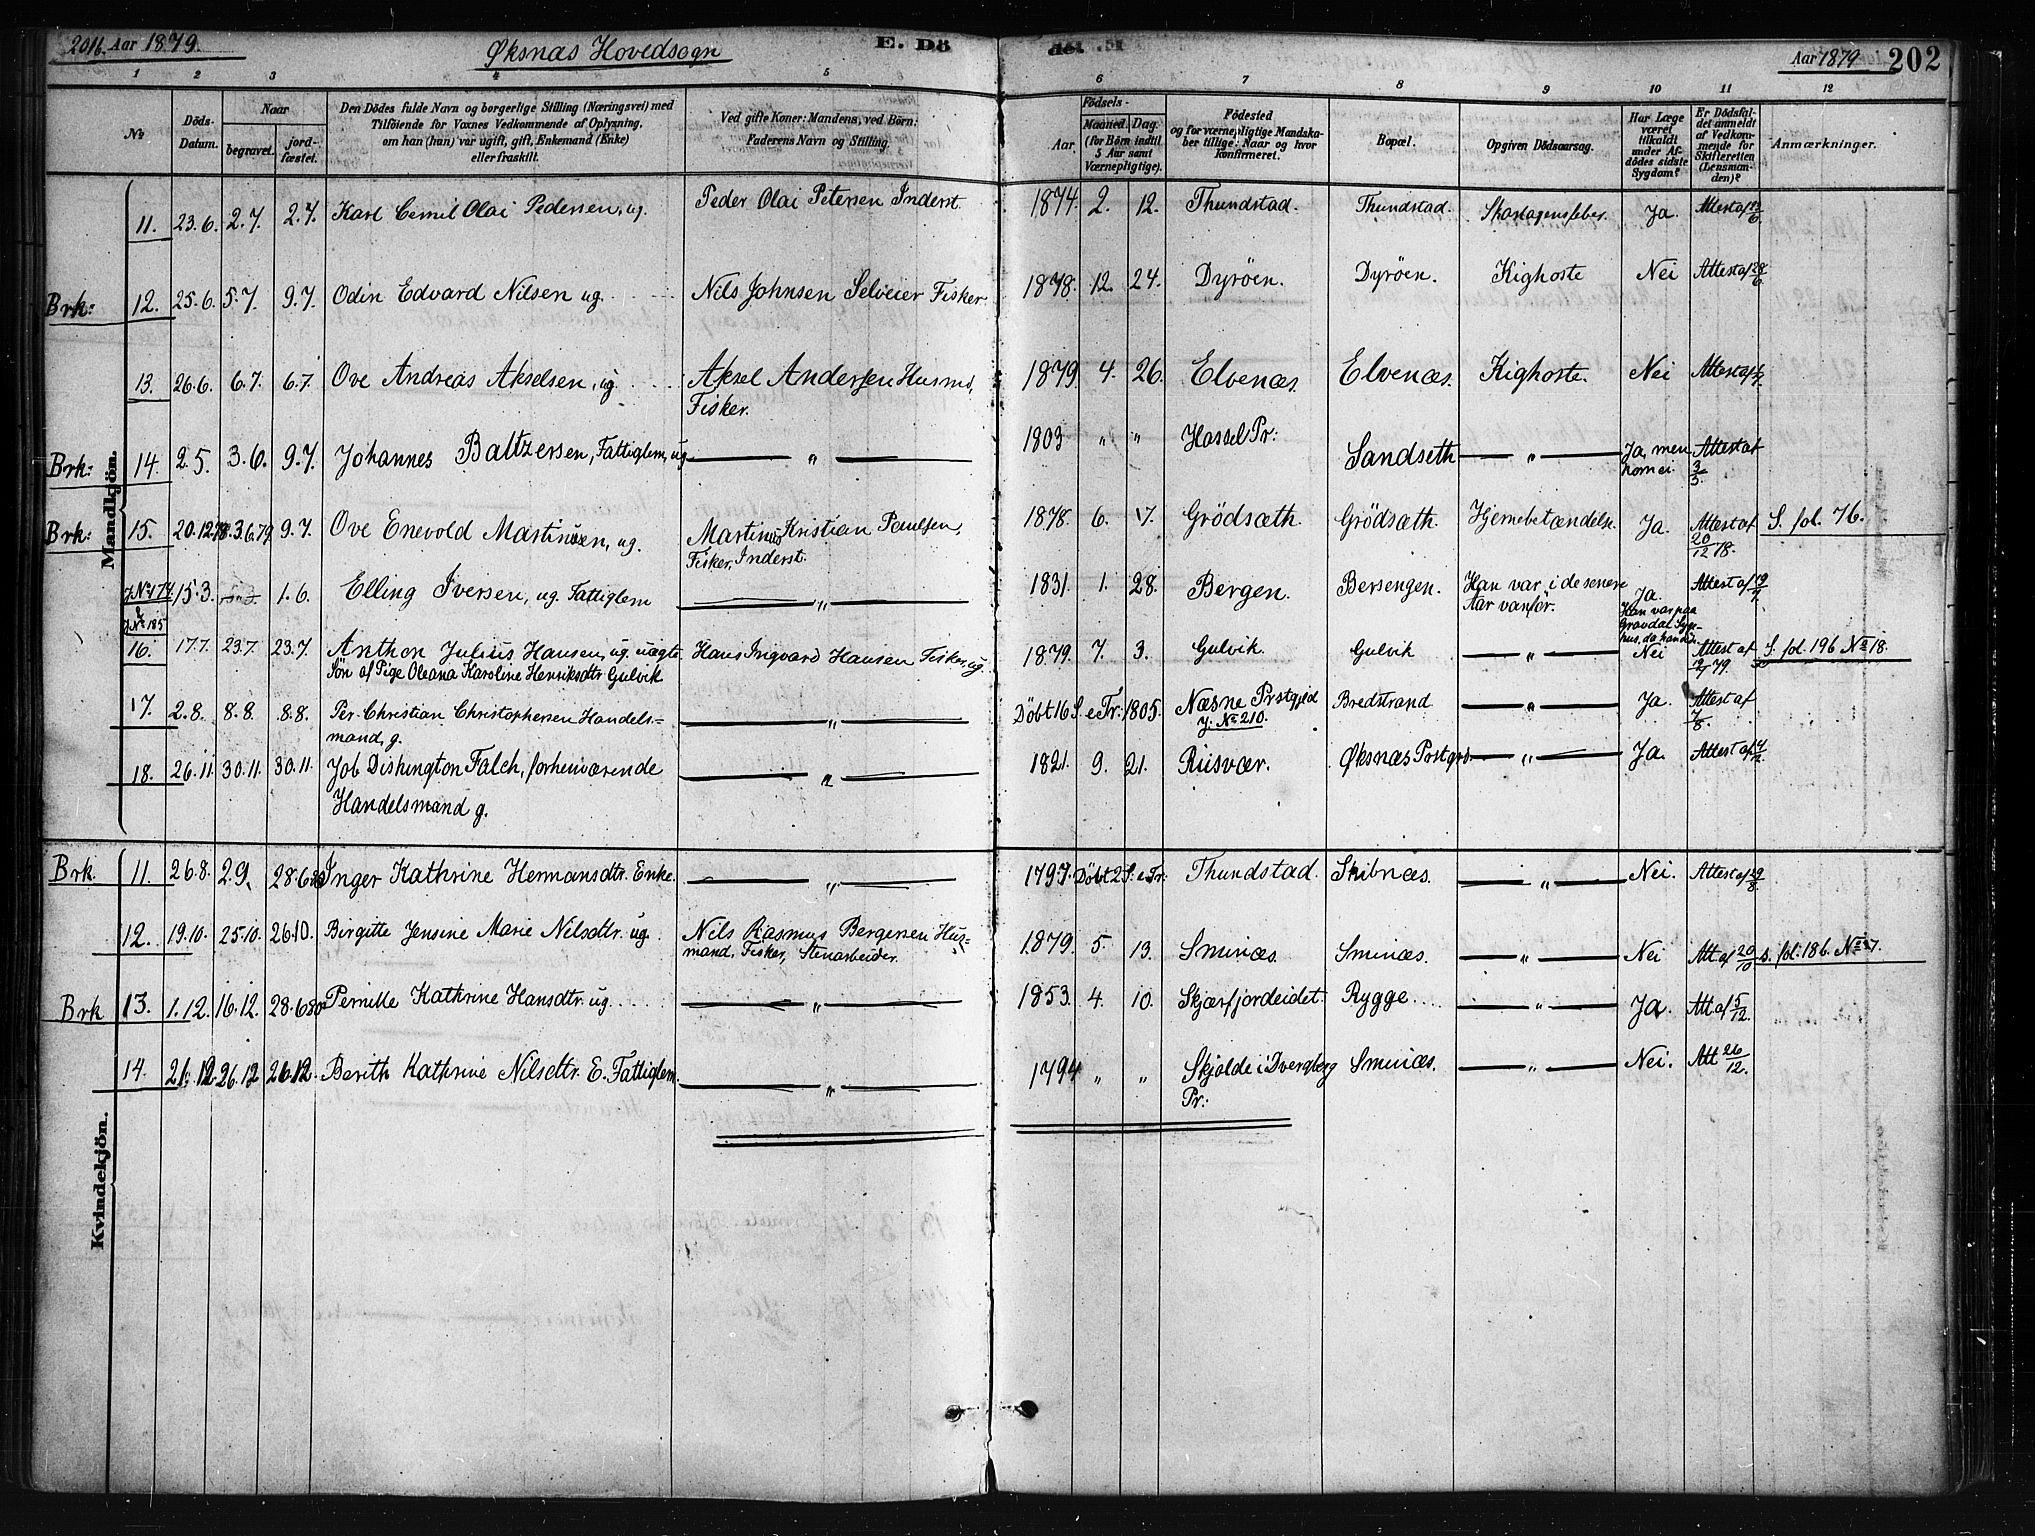 201b. Aar 1879. Øksnæs Hovedsogn E. Dö
de. M Aar 1879 202
1 2 3 4 5 6 7 8 9 10 11 12
№ Döds-Datum. Naar begravet. jord-fæstet. Den Dödes fulde Navn og borgerlige Stilling (Næringsvei) med Tilföiende for Voxnes Vedkommende af Oplysning, om han (hun) var ugift, gift, Enkemand (Enke) eller fraskilt. Ved gifte Koner: Mandens, ved Börn: Faderens Navn og Stilling.
Födsels- Aar. Maaned. Dag. (for Börn indtil 5 Aar samt Værnepligtige). Födested og for værnepligtige Mandskaber tillige: Naar og hvor konfirmeret. Bopæl. Opgiven Dödsaarsag. Har Læge været tilkaldt under Afdödes sidste Sygdom? Er Dödsfaldet anmeldt af Vedkommende for Skifteretten (Lensmanden)? Anmærkninger.
Mandkjön.
11. 23.6. 2.7. 2.7. Karl Cemil Olai Pedersen, ug. Peder Olai Petersen Inderst. 1874. 2. 12. Thundstad. Thundstad. Skarlagensfeber. Ja. Attest af
Brk: 12. 25.6. 5.7. 9.7. Odin Edvard Nilsen ug. Nils Johnsen Selveier Fisker. 1878. 12. 24. Dyröen. Dyröen. Kighoste Nei Attest af 28/6.
13. 26.6. 6.7. 6.7. Ove Andreas Akselsen, ug. Aksel Andersen Husmd,
Fisker. 1879 4. 26. Elvenæs. Elvenæs. Kighoste. Nei Attest af
Brk: 14. 2.5. 3.6. 9.7. Johannes Baltzersen, Fattiglem, ug — „ — 1803 „ „ Hassel Pr: Sandseth — „ — Ja, men
kom ei. Attest af
3/5.
Brk: 15. 20.12.78. 3.6.79 9.7. Ove Enevold Martinusen, ug. Martinus Kristian Paulsen,
Fisker, Inderst. 1878. 6. 17. Grödsæth. Grödsæth. Hjernebetændelse. Ja. Attest af
20/12 78. S. fol. 76.
J№ 174
& J№ 185 15.3. 1.6. Elling Iversen, ug. Fattiglem — „ — 1831. 1. 28. Bergen. Bersengen. Han var i de senere
Aar vanför. Ja.
Han var paa
Gravdal Syge-
hus, da han döde. Attest af
16. 17.7. 23.7. 23.7. Anthon Julius Hansen, ug. uægte
Sön af Pige Oleana Karoline Henriksdtr. Gulvik Hans Ingvard Hansen Fisker, ug. 1879. 7. 3. Gulvik Gulvik — „ — Nei Attest af
79. S. fol. 196 № 18.
17. 2.8. 8.8. 8.8. Per Christian Christophersen Handels-
mand, g. — „ — Döbt 16 S. e Tr: 1805. Næsne Prstgjeld
J. № 210. Bredstrand — „ — Ja. Attest af
7/8.
18. 26.11. 30.11. 30.11. Job Dishington Falch, forhenværende
Handelsmand g. — „ — 1821. 9. 21. Riisvær. Øksnæs Prstgrd — „ — Ja. Attest af
Kvindekjön.
Brk. 11. 26.8. 2.9. 28.6.80 Inger Kathrine Hermansdtr. Enke. — „ — 1797. Döbt 2 S. e Tr: Thundstad. Skibnæs. — „ — Nei. Attest af 29/8.
12. 19.10. 25.10. 26.10. Birgitte Jensine Marie Nilsdtr. ug. Nils Rasmus Bergersen Hus-
mand, Fisker, Stenarbeider. 1879. 5. 13. Sminæs. Sminæs. — „ — Nei Att af 20/10 s. fol. 186. № 27.
Brk 13. 1.12. 16.12. 28.6.80 Pernille Kathrine Hansdtr. ug. — „ — 1853. 4. 10. Skjærfjordeidet. Rygge — „ — Ja. Att af 5/12.
14. 21.12. 26.12 26.12. Berith Kathrine Nilsdtr. E. Fattiglem. — „ — 1794 „ „ Skjolde i Dverberg
Pr: Sminæs. — „ — Nei. Att 26/12.